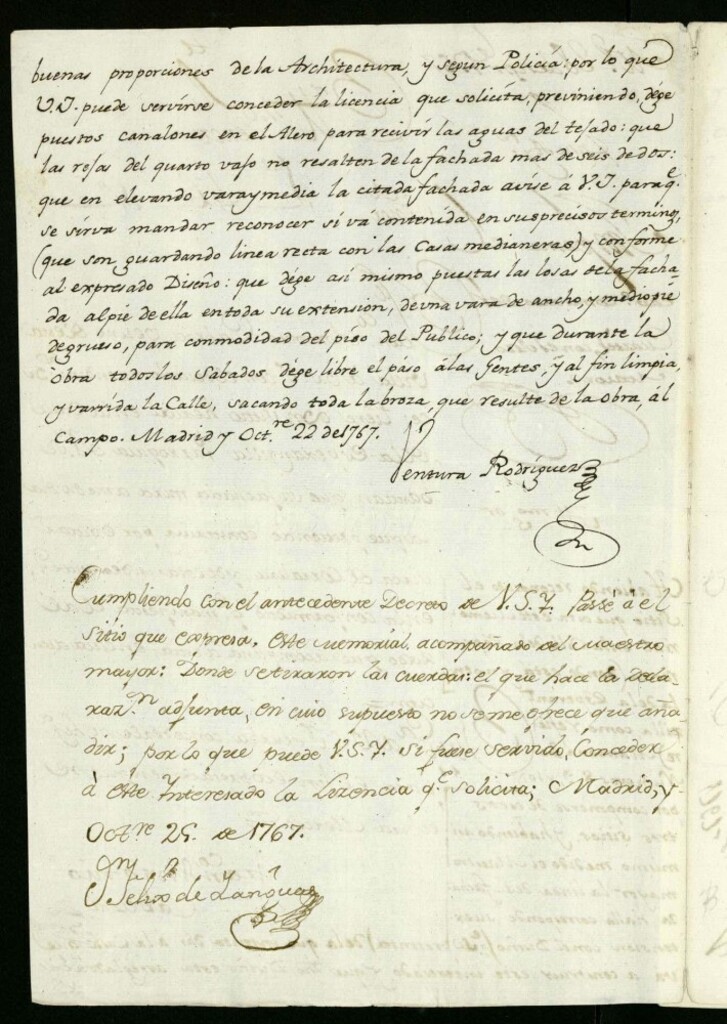 buenas proporciones de la Architectura, y segun Policía: por lo que
V.I. puede servirse conceder la licencia que solicíta, previniendo, dége
puestos canalones en el Alero para recivir las aguas del tejado: que
las rejas del quarto vajo no resalten de la fachada mas de seis dedos:
que en elevando vara y media la citada fachada avise á V.I. para q.e
se sirva mandar reconocer si vá contenida en sus precisos terminos,
(que son guardando linea recta con las Casas medianeras) y conforme
al expresado Diseño: que dége así mismo puestas las losas de la facha-
da al pie de ella en toda su extension, de una vara de ancho, y medio pie
de grueso, para conmodidad del piso del Publico; y que durante la
Obra todos los Sabados dége libre el páso á las Gentes, y al fin limpia,
y varrida la Calle, sacando toda la broza, que resulte de la Obra, ál
Campo. Madrid y Oct.re 22 de 1767.
Ventura Rodríguez
Cumpliendo con el antecedente Decreto de V.S.I. Passé á el
Sitio que expresa, este memorial, acompañado del Maestro
mayor: Donde se tiraron las cuerdas: el que hace la decla-
raz.n adjunta, en cuio supuesto no se me ofrece que aña-
dir; por lo que puede V.S.I. si fuese servido, Conceder
á este Interesado la Lizencia q.e solicita; Madrid, y
Oct.re 25. de 1767.
Phelix de Yanguas